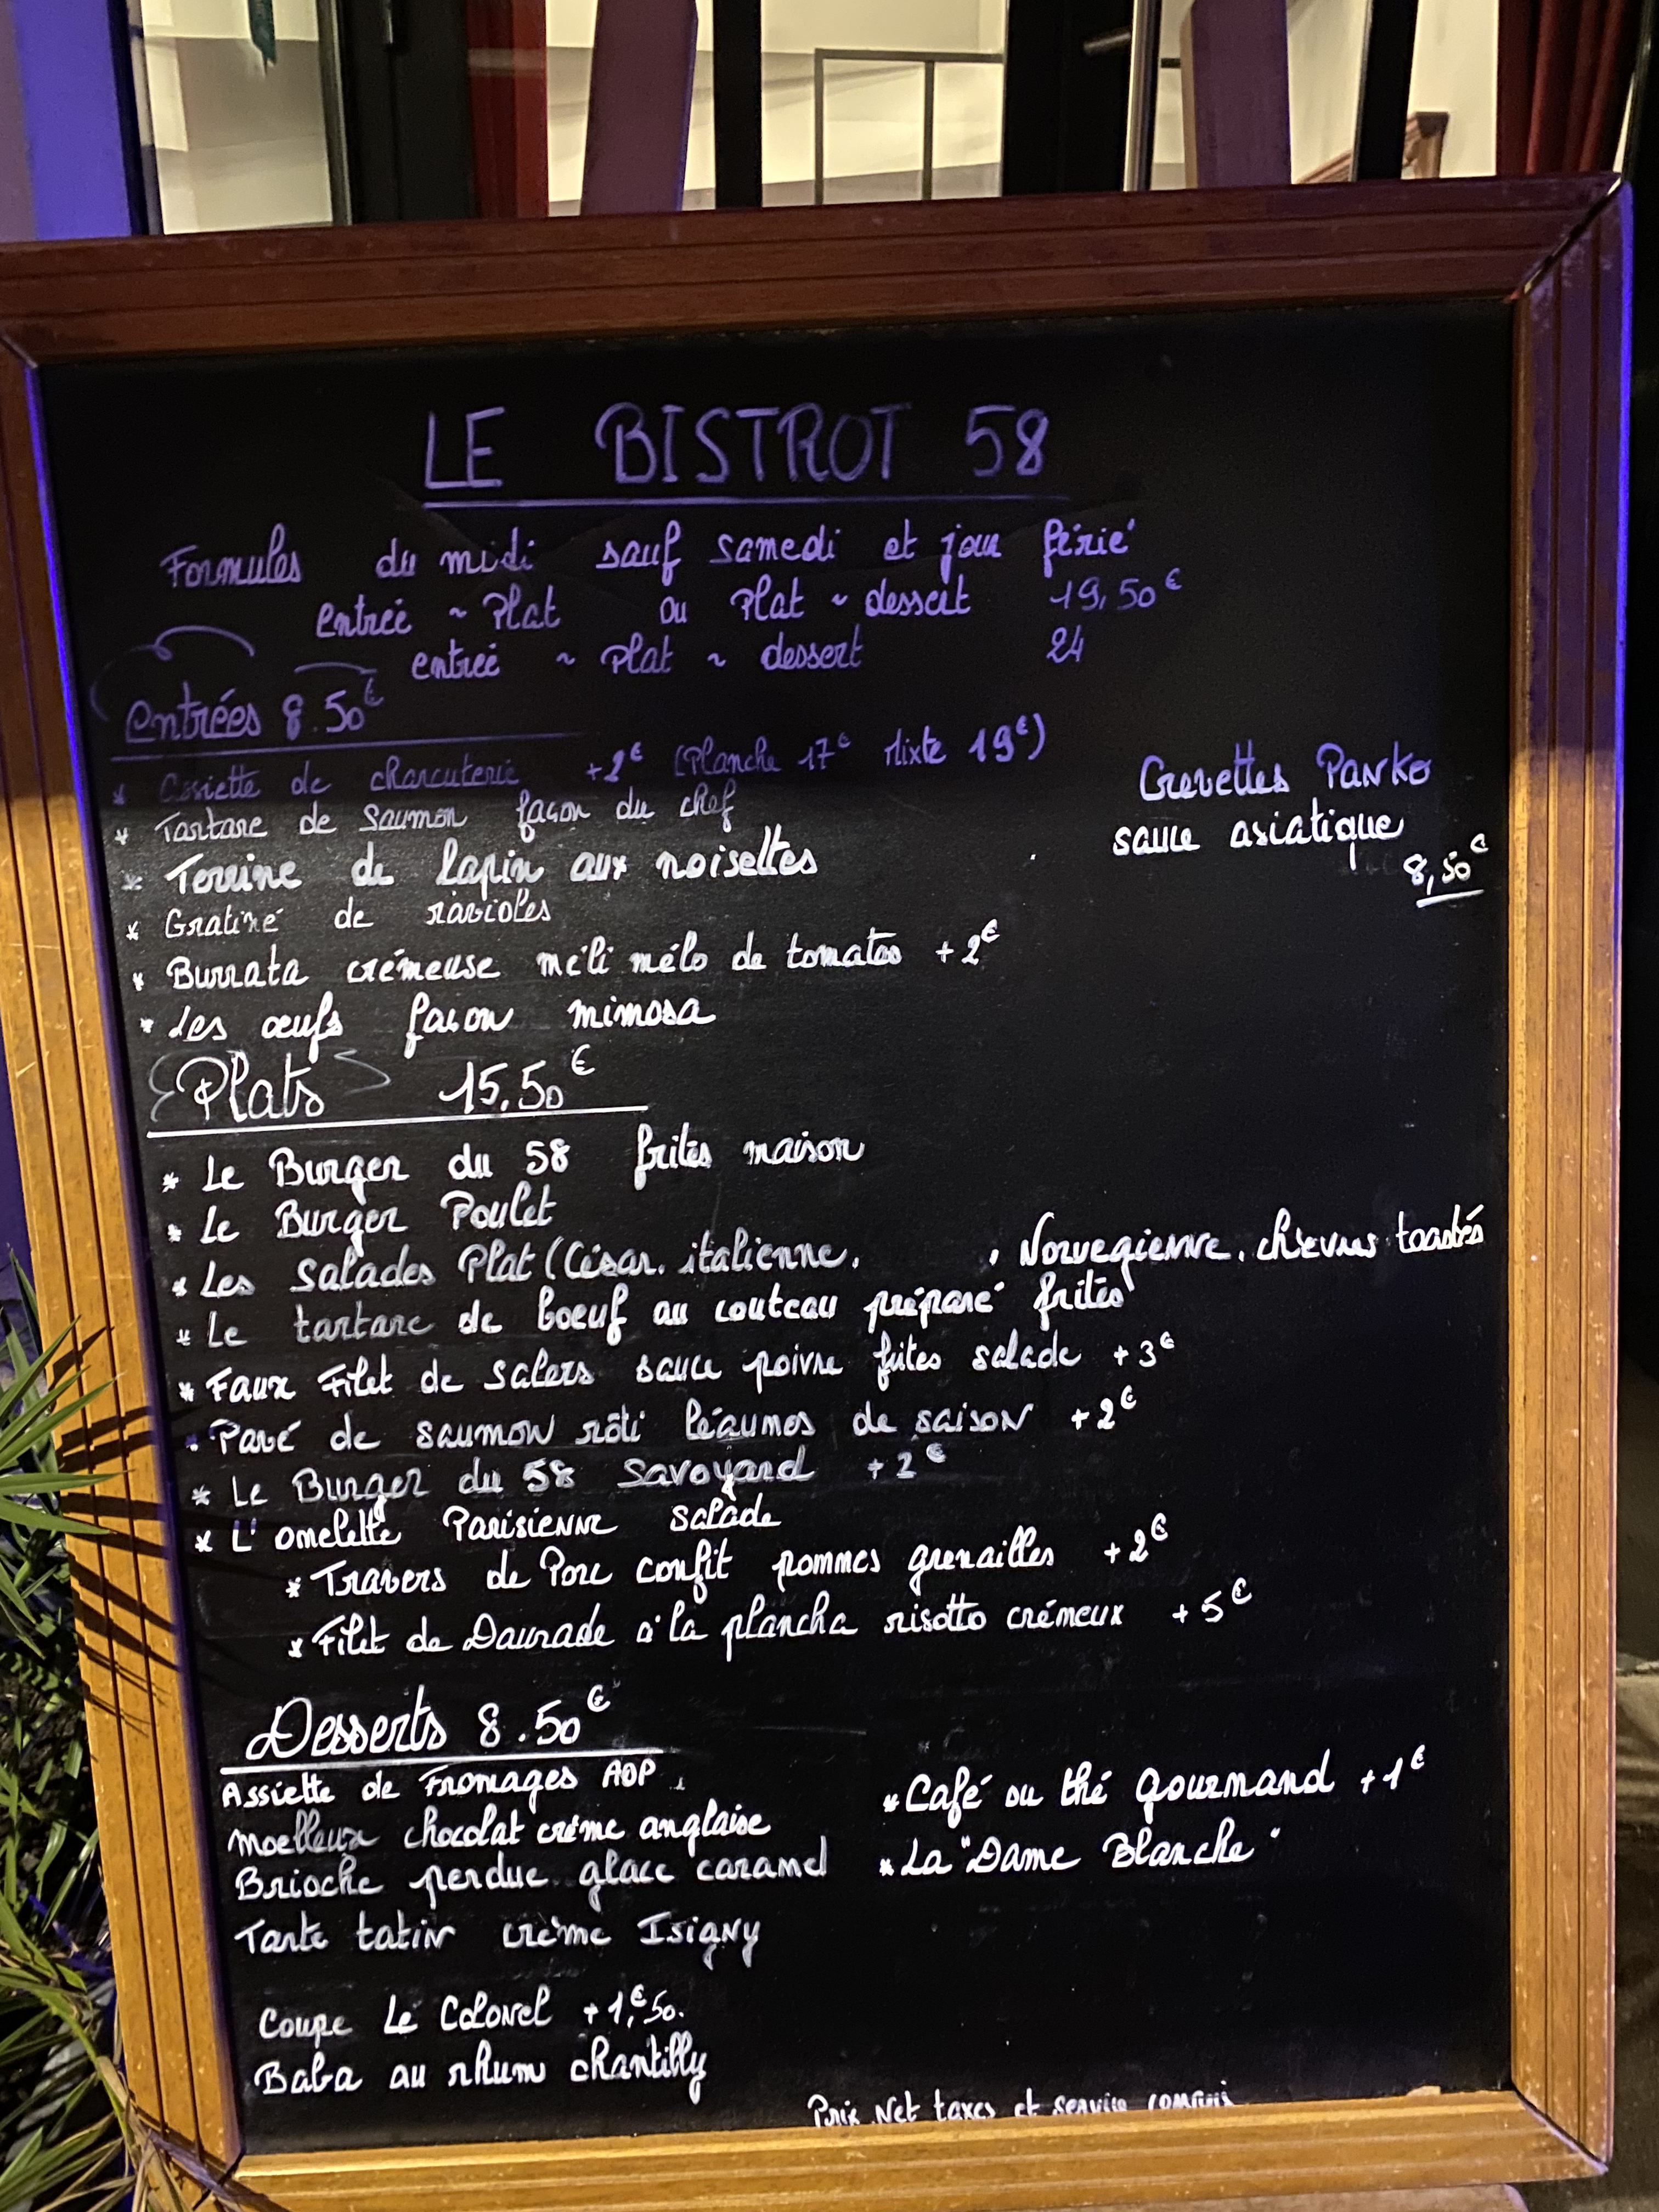 LE BISTROT 58
Formules du midi sauf samedi et jour férié
entrée ~ Plat ou Plat ~ dessert 19,50€
entrée ~ Plat ~ dessert 24
entrées 8.50€
* Assiette de charcuterie +2€ (Planche 17€ Mixte 19€)
* Tartare de Saumon façon du chef
* Terrine de lapin aux noisettes
* Gratiné de ravioles
* Burrata crémeuse méli mélo de tomates +2€
* Les œufs façon mimosa
Crevettes Panko
sauce asiatique
8,50€
Plats 15,50€
* Le Burger du 58 frites maison
* Le Burger Poulet
* Les Salades Plat (César, italienne, , Norvegienne, chèvres toastés
* Le tartare de boeuf au couteau préparé frites
* Faux Filet de Salers sauce poivre frites salade +3€
. Pavé de saumon rôti légumes de saison +2€
* Le Burger du 58 Savoyard +2€
* L'omelette Parisienne salade
* Travers de Porc confit pommes grenailles +2€
* Filet de Daurade à la plancha risotto crémeux +5€
Desserts 8.50€
Assiette de Fromages AOP
Moelleux chocolat crème anglaise
Brioche perdue glace caramel
Tarte tatin crème Isigny
Coupe Le Colonel +1,€50.
Baba au rhum chantilly
* Café ou thé gourmand +1€
* La "Dame Blanche"
Prix Net taxes et service compris